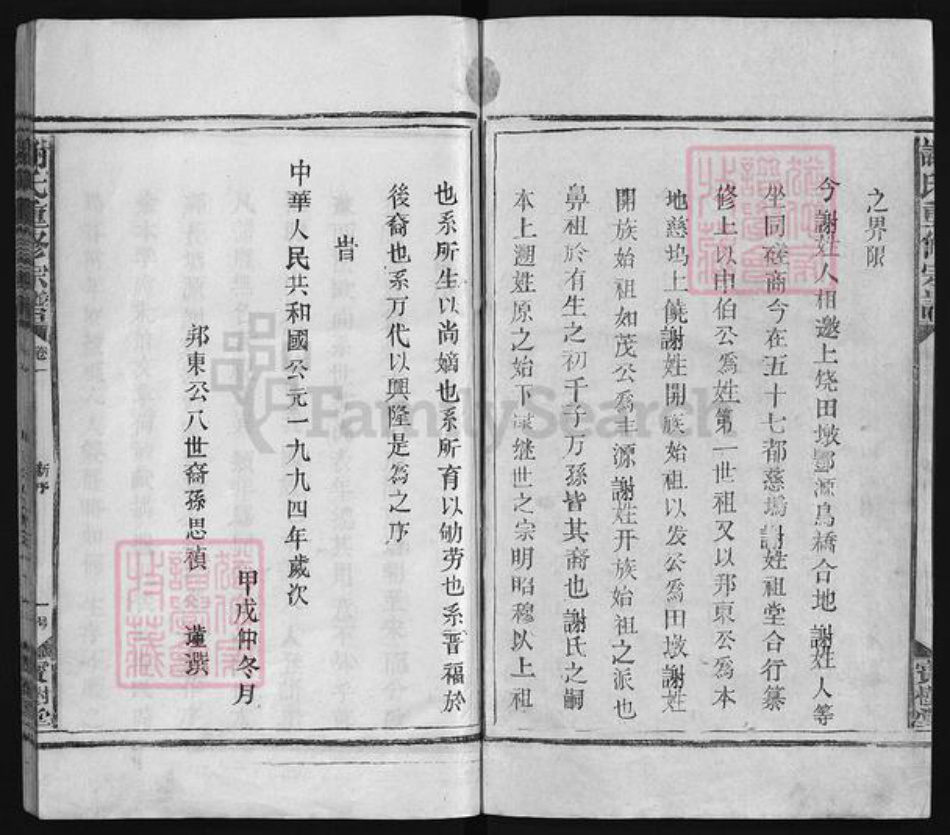 之界限
今謝姓人相邀上饶田墩鄷源鳥橋合地謝姓人等
坐同磋商今在五十七都慈塢謝姓祖堂合行纂
修上以申伯公爲姓第一世祖又以邦東公爲本
地慈坞上饒謝姓開族始祖以发公爲田墩謝姓
開族始祖如茂公爲丰源謝姓开族始祖之派也
鼻祖於有生之初千子万孫皆其裔也謝氏之嗣
本上溯姓原之始下繼世之宗明昭穆以上祖
也系所生以尚嫡也系所育以劬劳也系晋福於
後裔也系万代以興隆是爲之序
旹
中華人民共和國公元一九九四年歲次
甲戌仲冬月
邦東公八世裔孫思禎 謹撰
謝氏重修宗譜
卷一
新序
一号
寶樹堂
謝氏重修宗譜
寶樹堂
FamilySearch